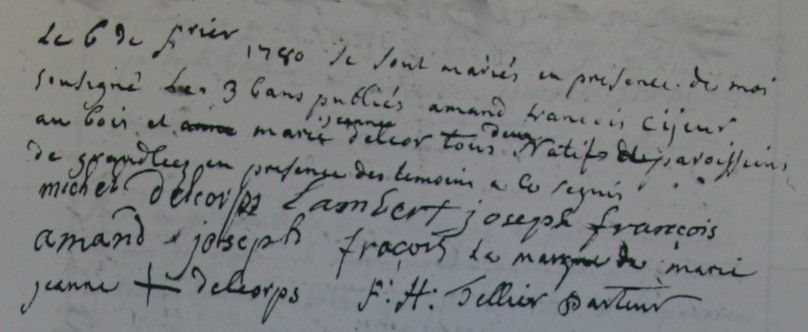 Le 6 de frvier 1780 se sont mariés en présence de moi
sousigné les 3 bans publiés amand francois cijeur
au bois et marie jeanne delcor tous deux Natifs et paroissiens
de grandleez en presence des temoins a ce requis
michel delcorps Lambert joseph francois
amand joseph fracois La marque de marie
jeanne + delcorps F: H: Tellier pasteur